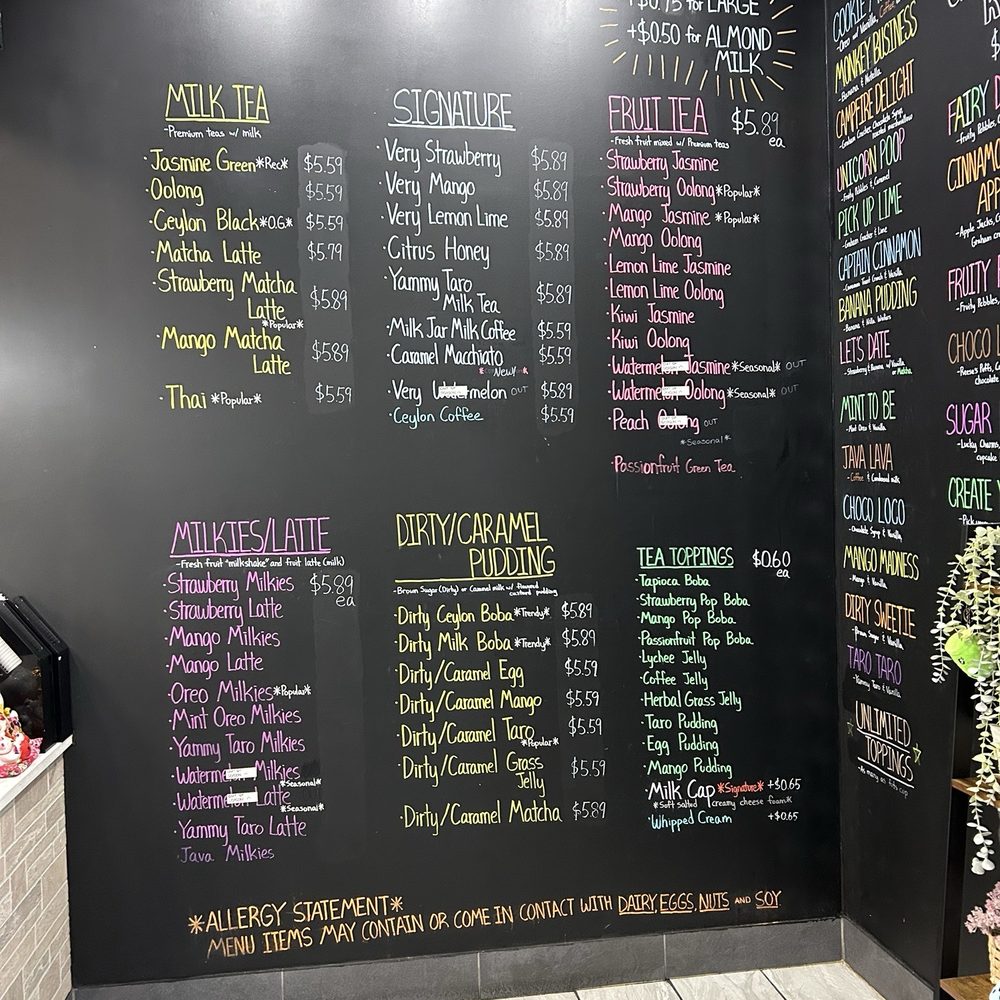 +$0.75 for LARGE
+$0.50 for ALMOND
MILK
MILK TEA
-Premium teas w/ milk
·Jasmine Green *Rec* $5.59
·Oolong $5.59
·Ceylon Black *O.G.* $5.59
·Matcha Latte $5.79
·Strawberry Matcha
Latte $5.89
*Popular*
·Mango Matcha
Latte $5.89
·Thai *Popular* $5.59
SIGNATURE
·Very Strawberry $5.89
·Very Mango $5.89
·Very Lemon Lime $5.89
·Citrus Honey $5.89
·Yammy Taro
Milk Tea $5.89
·Milk Jar Milk Coffee $5.59
·Caramel Macchiato $5.59
NEW
·Very Watermelon OUT $5.89
·Ceylon Coffee $5.59
FRUIT TEA $5.89
ea
-Fresh fruit mixed w/ Premium teas
·Strawberry Jasmine
·Strawberry Oolong *Popular*
·Mango Jasmine *Popular*
·Mango Oolong
·Lemon Lime Jasmine
·Lemon Lime Oolong
·Kiwi Jasmine
·Kiwi Oolong
·Watermelon Jasmine *Seasonal* OUT
·Watermelon Oolong *Seasonal* OUT
·Peach Oolong OUT
*Seasonal*
·Passionfruit Green Tea
MILKIES/LATTE
-Fresh fruit "milkshake" and fruit latte (milk)
·Strawberry Milkies $5.89
ea
·Strawberry Latte
·Mango Milkies
·Mango Latte
·Oreo Milkies *Popular*
·Mint Oreo Milkies
·Yammy Taro Milkies
·Watermelon Milkies
*Seasonal*
·Watermelon Latte
*Seasonal*
·Yammy Taro Latte
·Java Milkies
DIRTY/CARAMEL
PUDDING
-Brown Sugar (Dirty) or Caramel milk w/ flavored
custard pudding
·Dirty Ceylon Boba *Trendy* $5.89
·Dirty Milk Boba *Trendy* $5.89
·Dirty/Caramel Egg $5.59
·Dirty/Caramel Mango $5.59
·Dirty/Caramel Taro $5.59
*Popular*
·Dirty/Caramel Grass
Jelly $5.59
·Dirty/Caramel Matcha $5.89
TEA TOPPINGS $0.60
ea
·Tapioca Boba
·Strawberry Pop Boba
·Mango Pop Boba
·Passionfruit Pop Boba
·Lychee Jelly
·Coffee Jelly
·Herbal Grass Jelly
·Taro Pudding
·Egg Pudding
·Mango Pudding
·Milk Cap *Signature* +$0.65
*Soft salted creamy cheese foam*
·Whipped Cream +$0.65
*ALLERGY STATEMENT*
MENU ITEMS MAY CONTAIN OR COME IN CONTACT WITH DAIRY, EGGS, NUTS AND SOY
COOKIE
-Oreo and Vanilla, Coffee
MONKEY BUSINESS
-Banana & Nutella
CAMPFIRE DELIGHT
-Graham Cracker, Chocolate Syrup
UNICORN POOP
-Fruity Pebbles & Caramel
PICK UP LIME
-Graham Cracker & Lime
CAPTAIN CINNAMON
-Cinnamon Toast Crunch & Vanilla
BANANA PUDDING
-Banana & Nilla Wafers
LET'S DATE
-Strawberry & Banana w/ Vanilla
or Matcha
MINT TO BE
-Mint Oreo & Vanilla
JAVA LAVA
-Coffee & Condensed milk
CHOCO LOCO
-Chocolate Syrup & Vanilla
MANGO MADNESS
-Mango & Vanilla
DIRTY SWEETIE
-Brown Sugar & Vanilla
TARO TARO
-Yammy Taro & Vanilla
UNLIMITED
TOPPINGS
-As many as fits cup
FAIRY
-Fruity Pebbles,
CINNAMON
APP
-Apple Jacks,
Graham cr
FRUITY
-Fruity Pebbles,
CHOCO
-Reese's Puffs,
chocolate
SUGAR
-Lucky Charms,
cupcake
CREATE